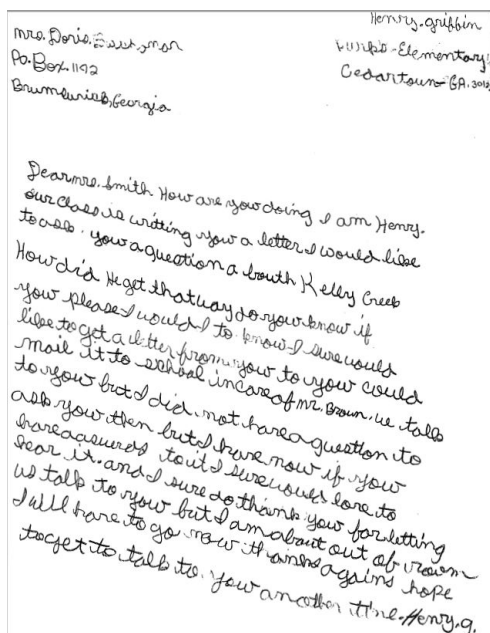 Henry. griffin
Mrs. Doris.
Elementary
Po. Box. 1192
Cedartown GA.
Georgia
Dear mrs. Smith How are you doing I am Henry.
our class is writing you a letter I would like
to ask. you a question a bouth Kelly Creek
How did He get that way do you know if
you please I would I to know I sure would
like to get a letter from you to you could
mail it to school in care of mr. Brown. we talk
to you but I did not have a question to
ask you then but I have now if you
have a to it I sure would love to
hear it. and I sure do thank you for letting
us talk to you but I am about out of room
I will have to go now thanks agains hope
to get to talk to you another time. Henry. g.